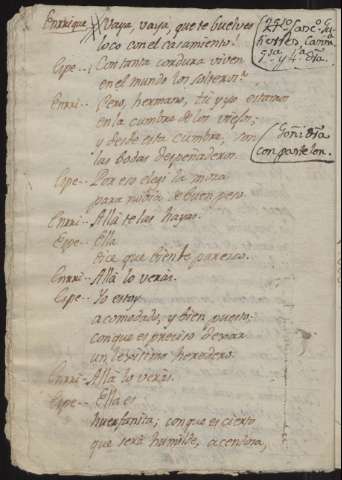 Enrrique // Vaya, vaya, que te buelves
loco con el casamiento.
Espe.. Con tanta cordura viven
en el mundo los solteros?
Enrri.. Pero, hermano, tú y yo estamos
en la cumbre de los viejos;
y desde esta cumbre, son
las bodas despeñaderos.
Espe.. Por eso elegi la moza
para nuvia de buen peso.
Enrri.. Allá te las hayas.
Espe.. Ella
dice que biente parezco.
Enrri.. Allá lo verás.
Espe.. Yo estoy
acomodado, y bien puesto:
con que es preciso dexar
un lexitimo heredero.
Enrri.. Allá lo verás.
Espe.. Ella es
huerfanita; con que es cierto
que será humilde, acendosa,
con pastelon.